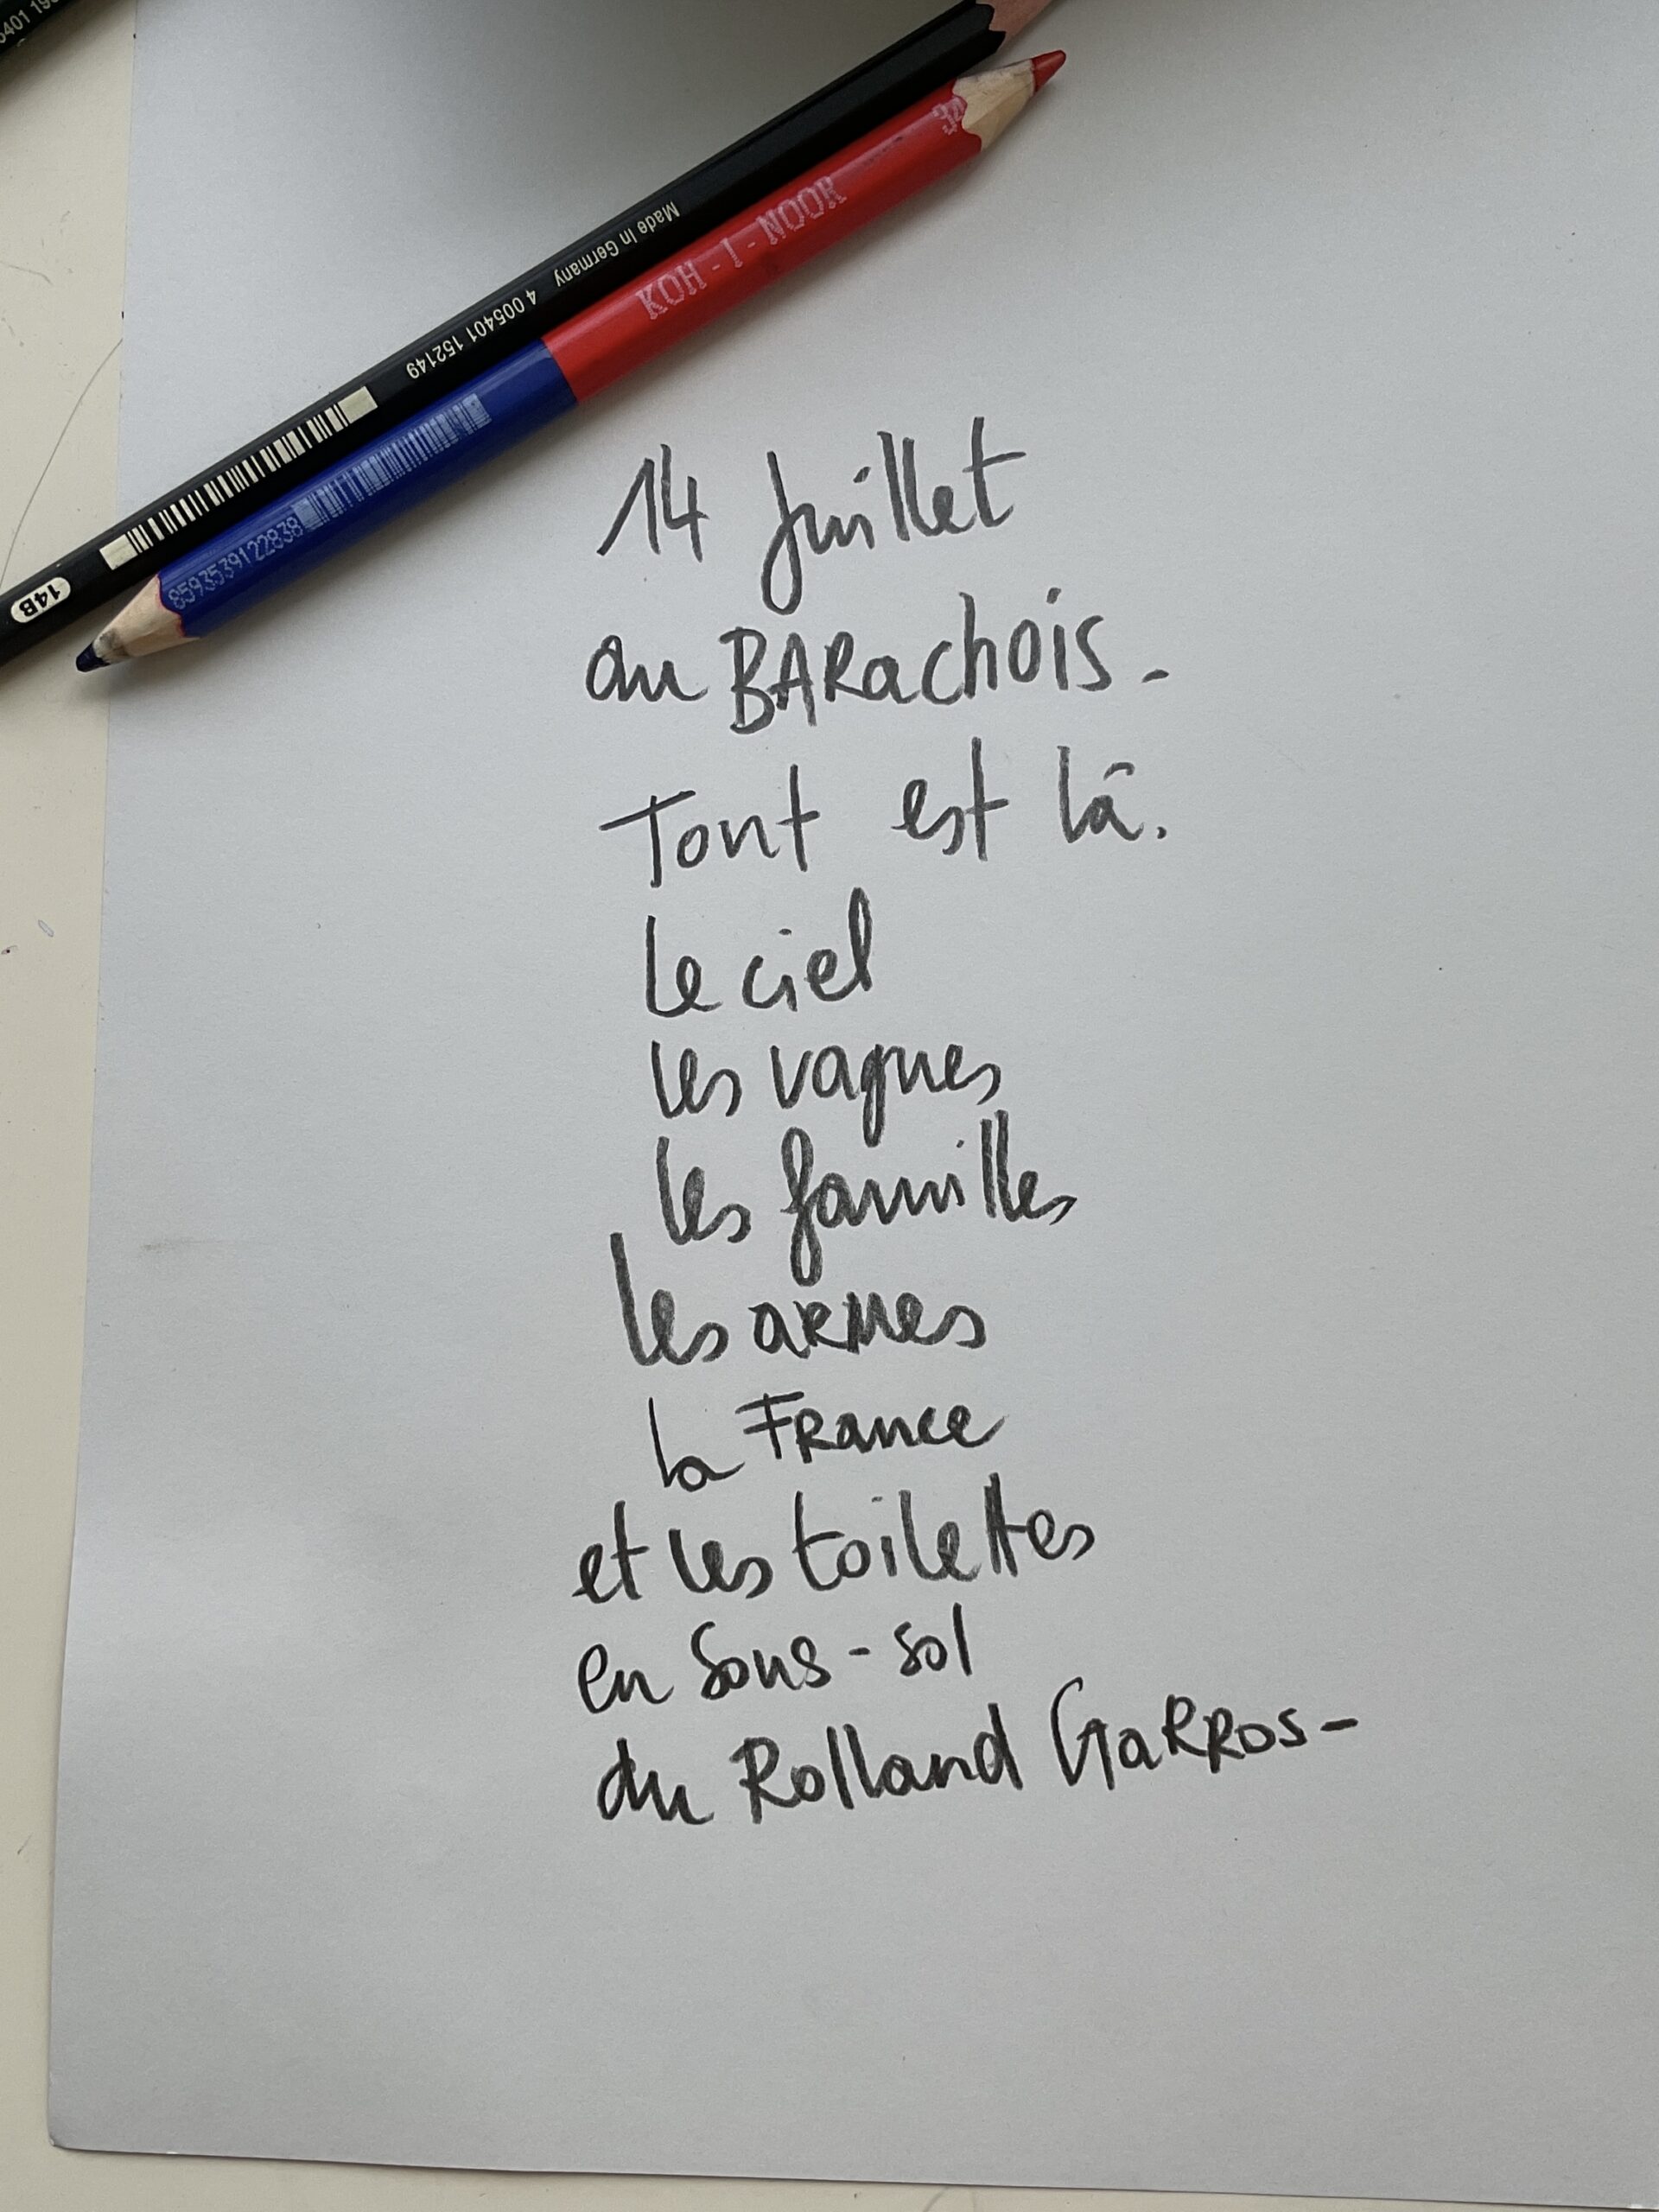 5401 19
Made in Germany 4 005401 152149
14B
KOH-I-NOOR 34
8593539122838
14 Juillet
au BARachois -
Tout est là.
le ciel
les vagues
les familles
les armes
la France
et les toilettes
en sous-sol
du Rolland GaRROS -